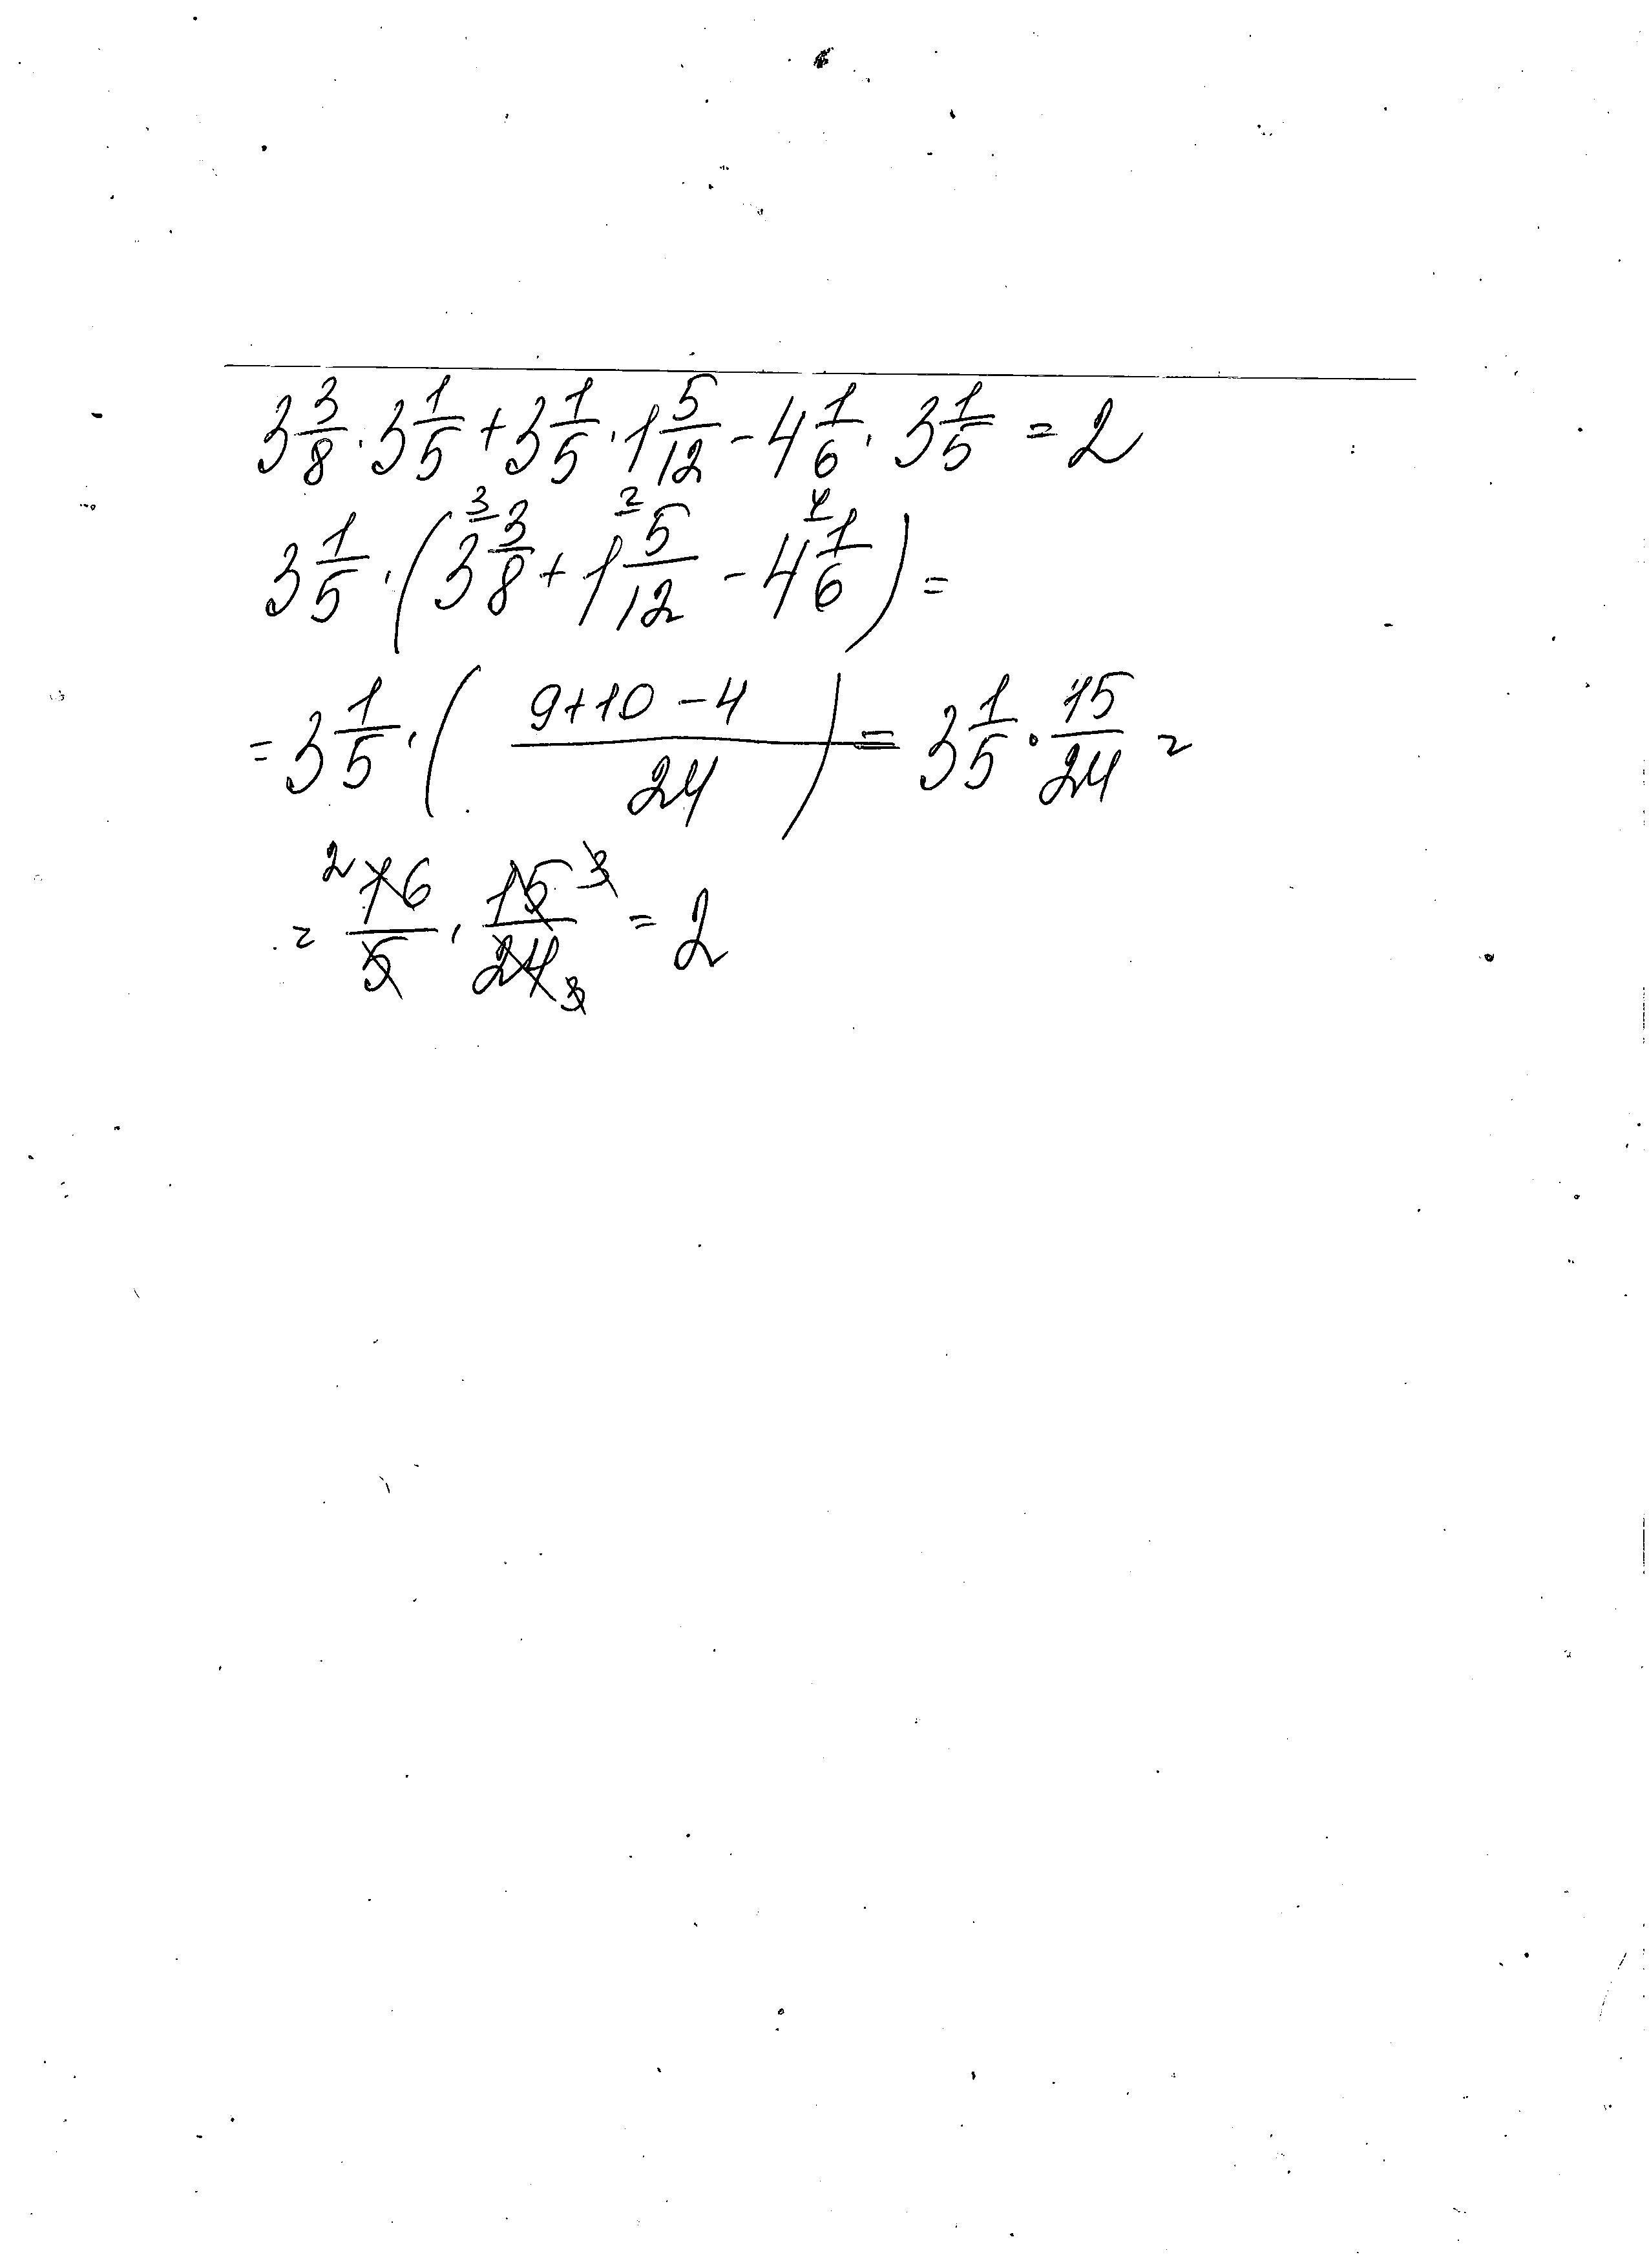 3 3/8 · 3 1/5 + 3 1/5 · 1 5/12 - 4 1/6 · 3 1/5 = 2
3 1/5 · ( 3 3/8 + 1 5/12 - 4 1/6 ) =
= 3 1/5 · ( (9+10-4)/24 ) = 3 1/5 · 15/24 =
= 16/5 · 15/24 = 2